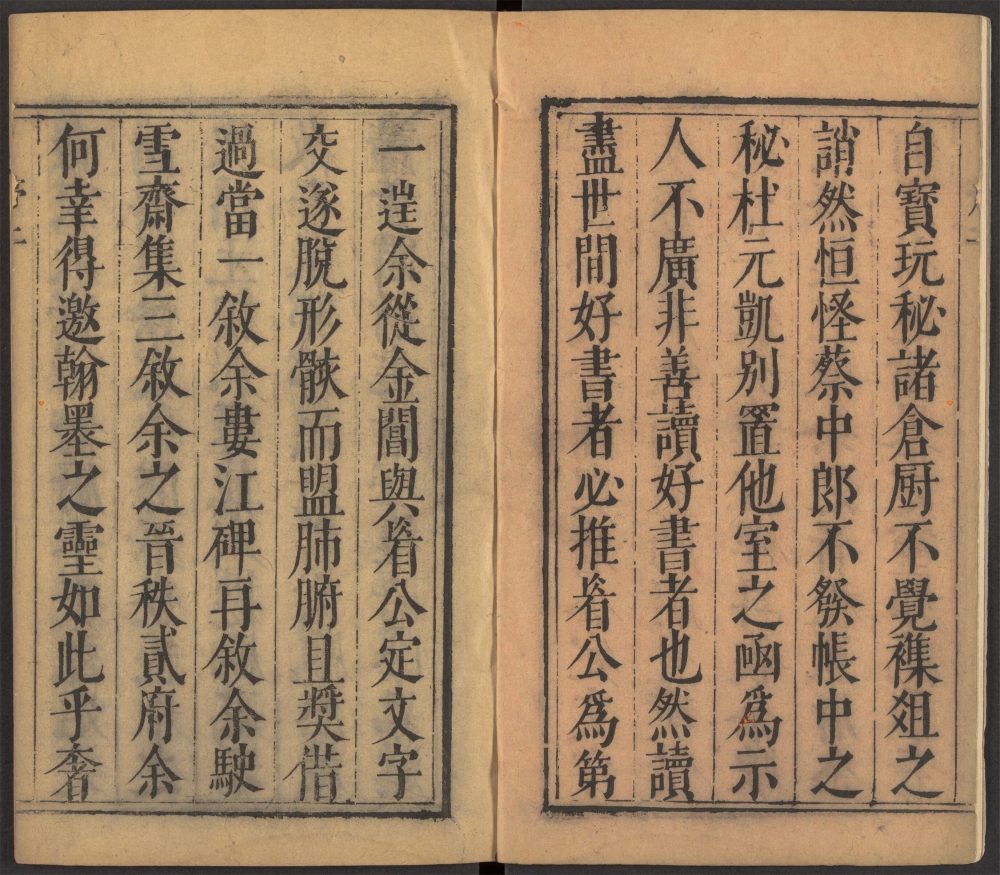 自寶玩秘諸倉厨不覺襍俎之
誚然恒怪蔡中郎不發帳中之
秘杜元凱別置他室之凾爲示
人不廣非善讀好書者也然讀
盡世間好書者必推眘公爲第
一逞余從金閶與眘公定文字
交遂脫形骸而盟肺腑且奬借
過當一敘余婁江碑再敘余駛
雪齋集三敘余之晉秩貳府余
何幸得邀翰墨之靈如此乎眘